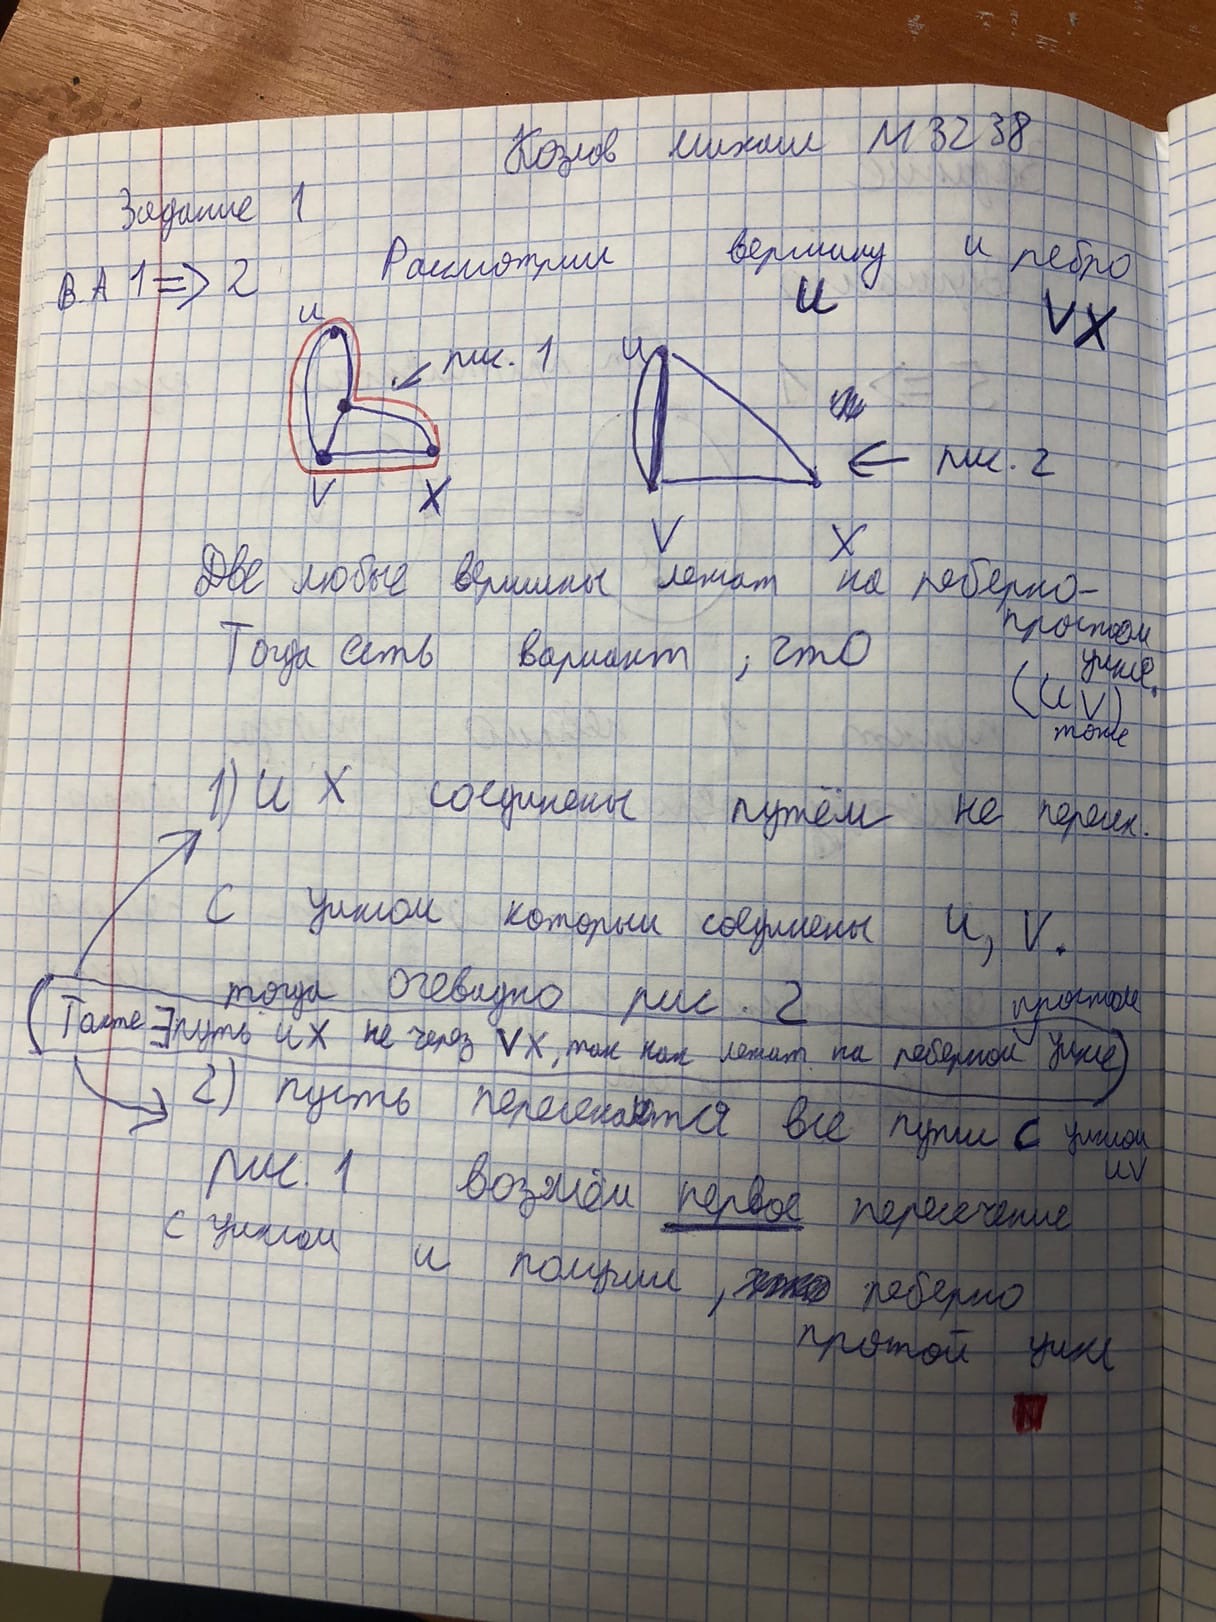 Козлов Михаил М3238
Задание 1
В.А 1 => 2 Рассмотрим вершину и ребро
U VX
U рис. 1 U
← рис. 2
V X V X
Две любые вершины лежат на реберно-
простом
Тогда есть вариант, что цикле.
(UV)
тоже
1) U X соединены путём не пересек.
с циклом которым соединены U, V.
тогда очевидно рис. 2
простом
(Также ∃ путь UX не через VX, так как лежат на реберном цикле)
2) пусть пересекаются все пути с циклом
UV
рис. 1 возмём первое пересечение
с циклом и получим, реберно
простой цикл